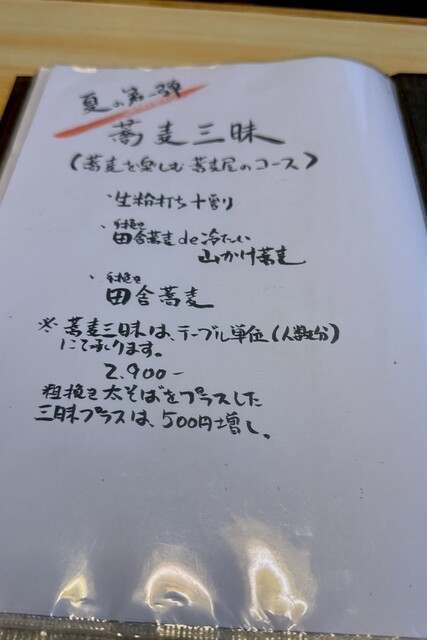 夏の第二弾
蕎麦三昧
(蕎麦を楽しむ蕎麦屋のコース)
・生粉打ち十割り
・手挽き
田舎蕎麦de冷たい
山かけ蕎麦
・手挽き
田舎蕎麦
※蕎麦三昧は、テーブル単位(人数分)
にて承ります。
2.900-
粗挽き太そばをプラスした
三昧プラスは、500円増し。